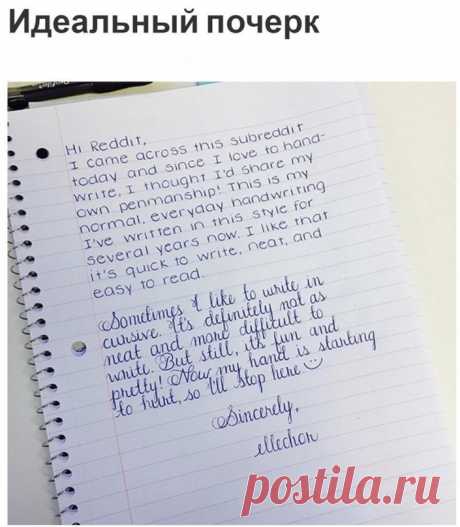 Идеальный почерк
Hi Reddit,
I came across this subreddit
today and since I love to hand-
write, I thought I'd share my
own penmanship! This is my
normal, everyday handwriting
I've written in this style for
several years now. I like that
it's quick to write, neat, and
easy to read.
Sometimes I like to write in
cursive. It's definitely not as
neat and more difficult to
write. But still, it's fun and
pretty! Now my hand is starting
to hurt, so I'll stop here
Sincerely,
ellechon
postila.ru